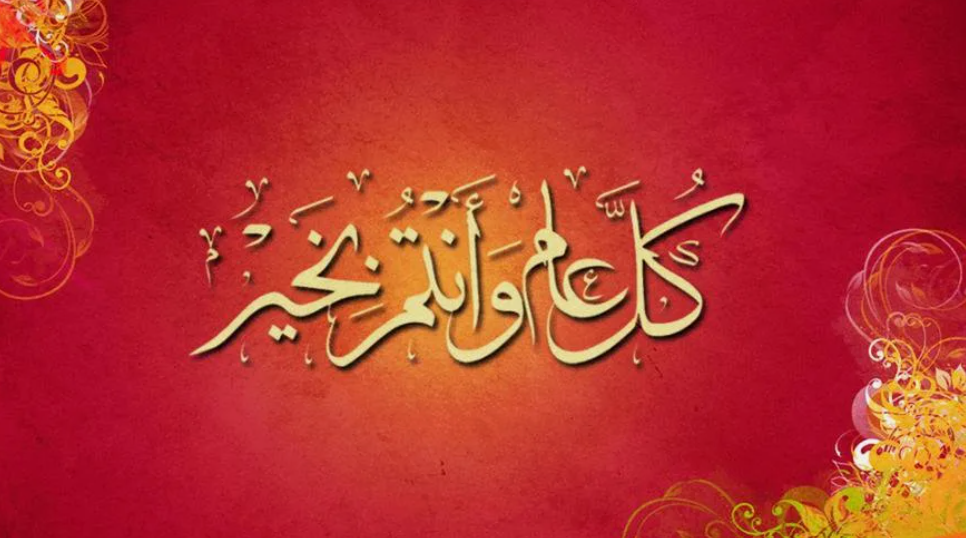 كُلَّ عَام وَأَنْتُم بِخَيْر